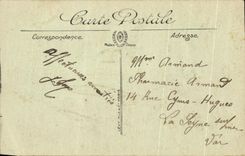 Carte Postale
Correspondance
Adresse
Affectueuses amitiés
Mme Armand
Pharmacie Armand
14 Rue Cyrus-Hugues
La Seyne sur mer
Var